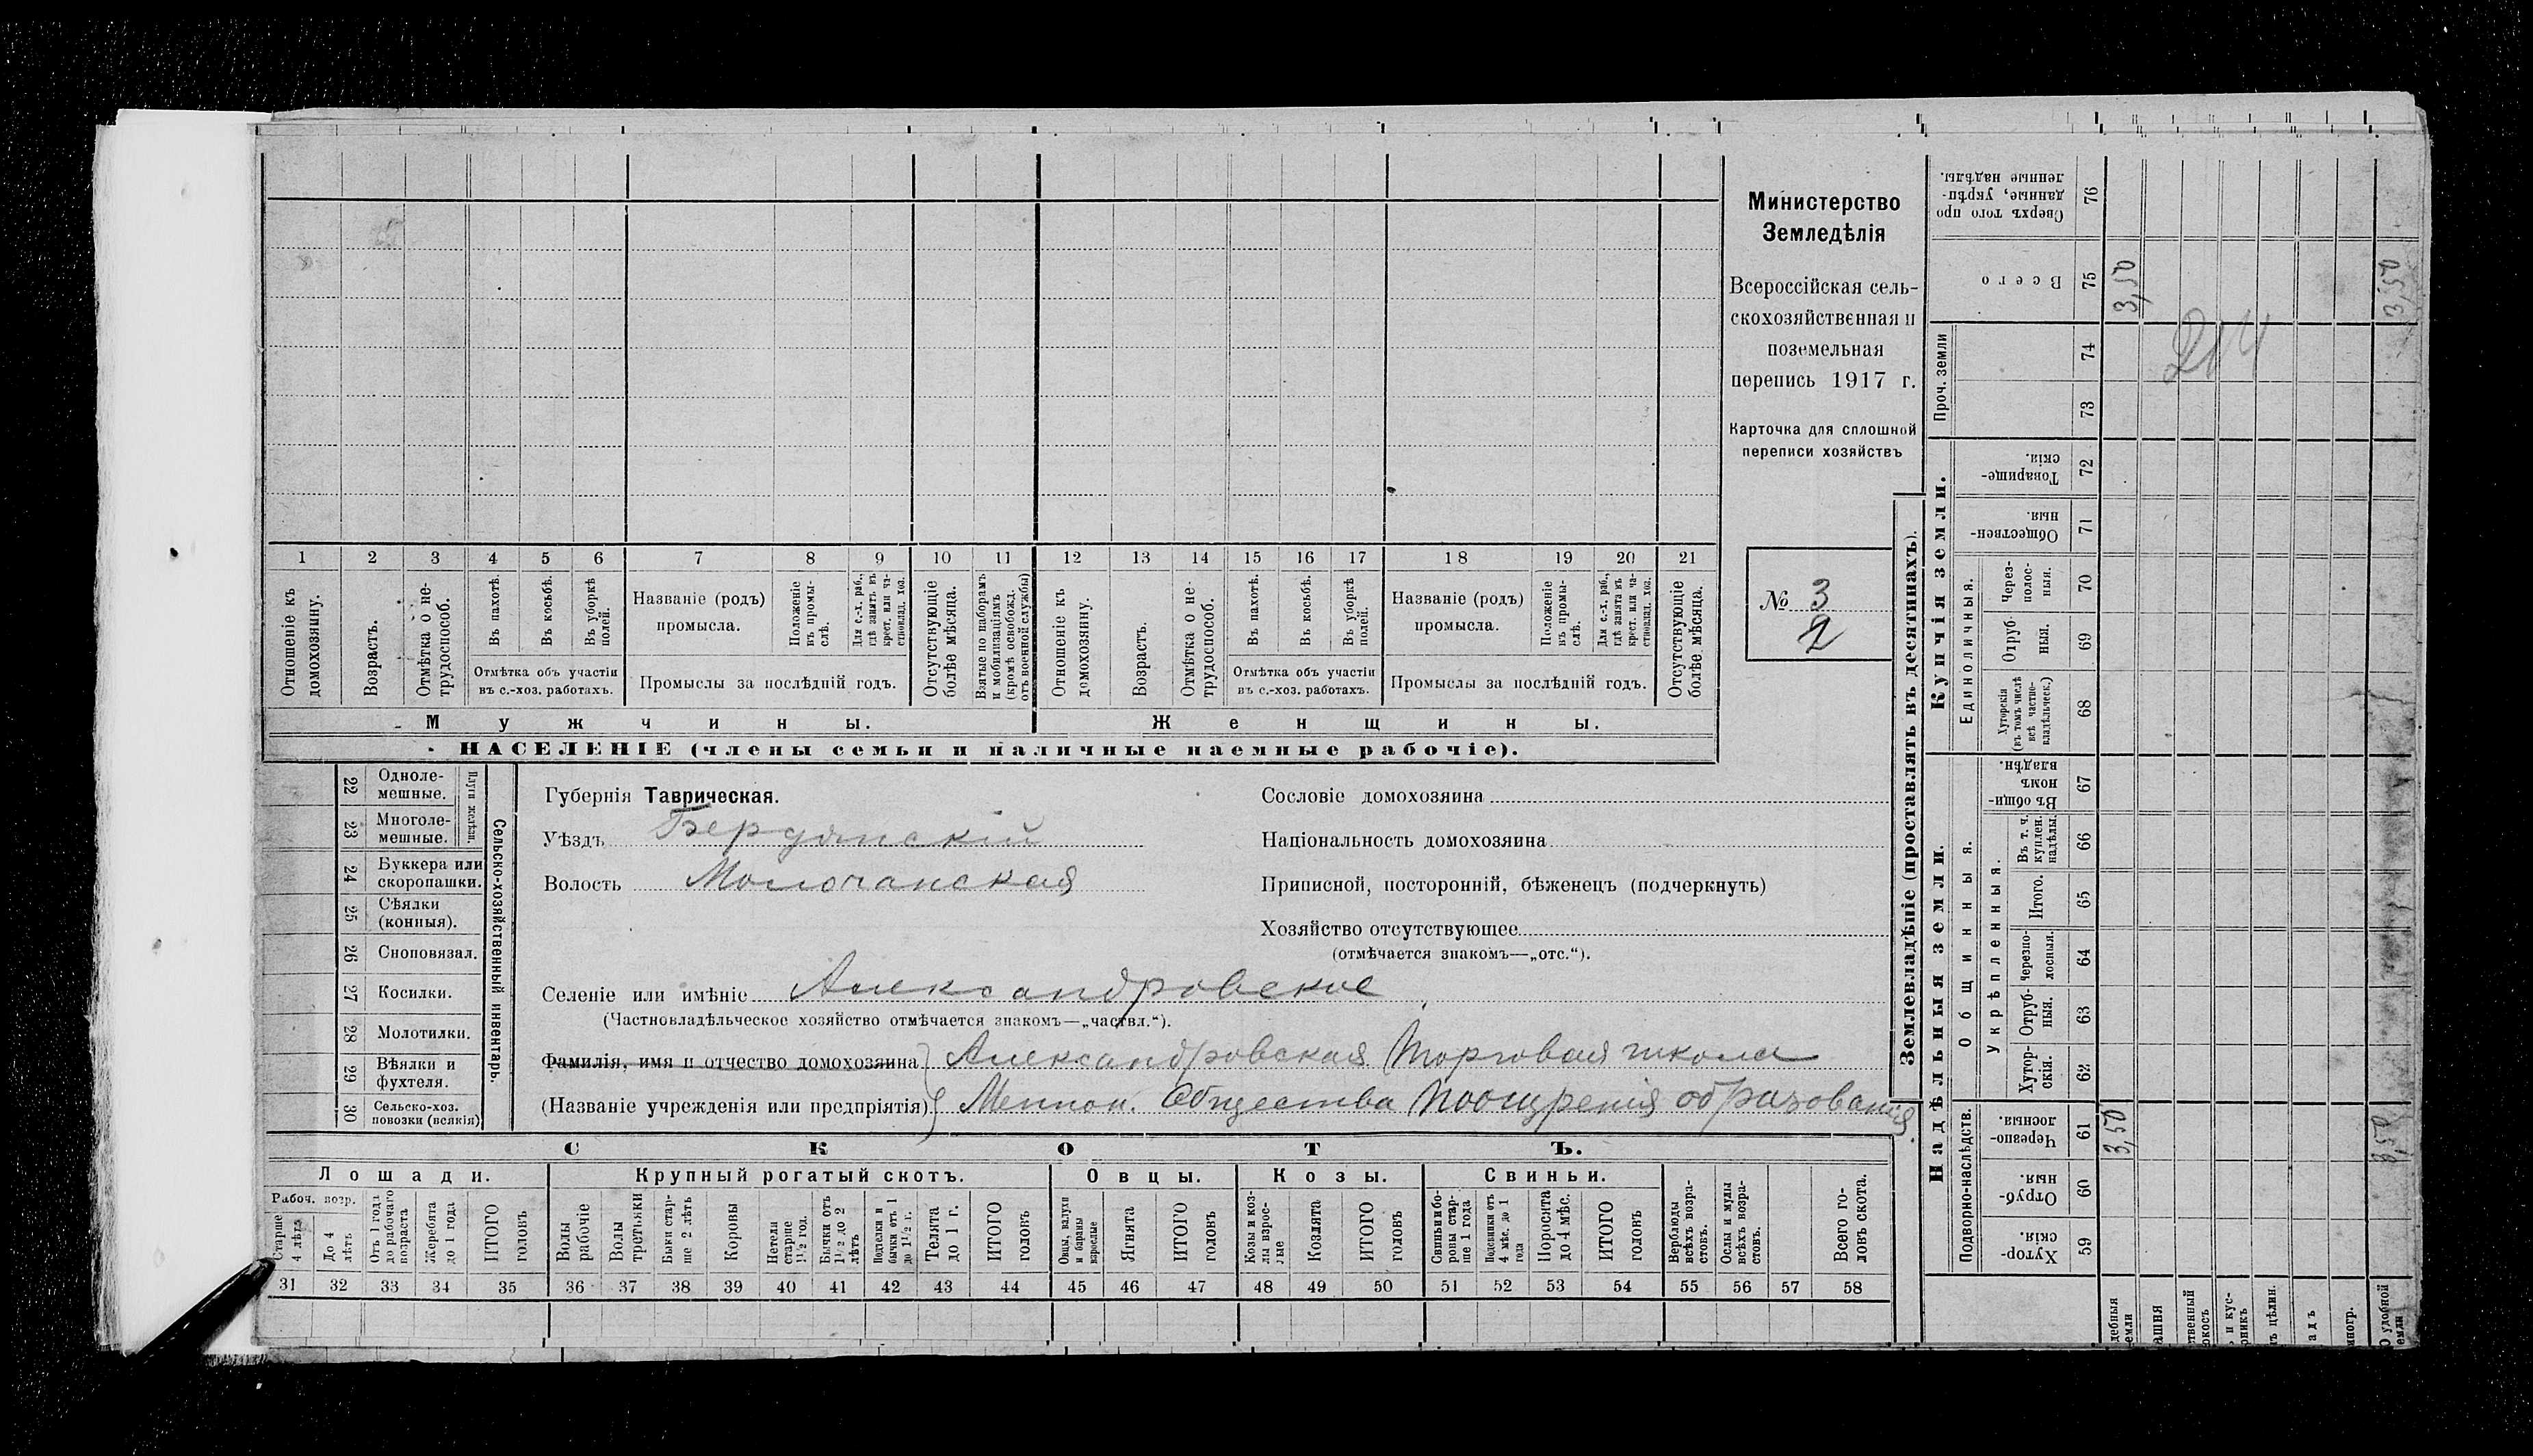 1 2 3 4 5 6 7 8 9 10 11 12 13 14 15 16 17 18 19 20 21
Отношеніе къ домохозяину.
Возрастъ.
Отмѣтка о не-трудоспособ.
Въ пахотѣ.
Въ косьбѣ.
Въ уборкѣ полей.
Отмѣтка объ участіи
въ с.-хоз. работахъ.
Названіе (родъ)
промысла.
Положеніе въ промы-слѣ.
Для с.-х. раб., гдѣ занятъ въ крест. или ча-стновлад. хоз.
Промыслы за послѣдній годъ.
Отсутствующіе болѣе мѣсяца.
Взятые по наборамъ и мобилизаціямъ (кромѣ освобожд. отъ военной службы)
Отношеніе къ домохозяину.
Возрастъ.
Отмѣтка о не-трудоспособ.
Въ пахотѣ.
Въ косьбѣ.
Въ уборкѣ полей.
Отмѣтка объ участіи
въ с.-хоз. работахъ.
Названіе (родъ)
промысла.
Положеніе въ промы-слѣ.
Для с.-х. раб., гдѣ занята въ крест. или ча-стновлад. хоз.
Промыслы за послѣдній годъ.
Отсутствующіе болѣе мѣсяца.
Мужчины.
Женщины.
НАСЕЛЕНІЕ (члены семьи и наличные наемные рабочіе).
Министерство
Земледѣлія
Всероссійская сель-
скохозяйственная и
поземельная
перепись 1917 г.
Карточка для сплошной
переписи хозяйствъ
№ 3
2
22 Одноле-мешные.
23 Многоле-мешные.
Плуги желѣзн.
24 Буккера или скоропашки.
25 Сѣялки (конныя).
26 Сноповязал.
27 Косилки.
28 Молотилки.
29 Вѣялки и фухтеля.
30 Сельско-хоз. повозки (всякія)
Сельско-хозяйственный инвентарь.
Губернія Таврическая.
Уѣздъ Бердянскій
Волость Молочанская
Сословіе домохозяина
Національность домохозяина
Приписной, посторонній, бѣженецъ (подчеркнуть)
Хозяйство отсутствующее
(отмѣчается знакомъ—„отс.“).
Селеніе или имѣніе Александровское
(Частновладѣльческое хозяйство отмѣчается знакомъ—„частвл.“).
Фамилія, имя и отчество домохозяина Александровская Торговая школа
(Названіе учрежденія или предпріятія) Меннон. Общества Поощренія образованія.
СКОТЪ.
Лошади. Крупный рогатый скотъ. Овцы. Козы. Свиньи.
Рабоч. возр.
Старше 4 лѣтъ
До 4 лѣтъ
Отъ 1 года до рабочаго возраста
Жеребята до 1 года
ИТОГО головъ
Волы рабочіе
Волы третьяки
Быки стар-ше 2 лѣтъ
Коровы
Нетели старше 1½ год.
Бычки отъ 1½ до 2 лѣтъ
Подтелки и бычки отъ 1 до 1½ г.
Телята до 1 г.
ИТОГО головъ
Овцы, валухи и бараны взрослые
Ягнята
ИТОГО головъ
Козы и коз-лы взрос-лые
Козлята
ИТОГО головъ
Свиньи и бо-ровы стар-ше 1 года
Подсвинки отъ 4 мѣс. до 1 года
Поросята до 4 мѣс.
ИТОГО головъ
Верблюды всѣхъ возра-стовъ.
Ослы и мулы всѣхъ возра-стовъ.
Всего го-ловъ скота.
31 32 33 34 35 36 37 38 39 40 41 42 43 44 45 46 47 48 49 50 51 52 53 54 55 56 57 58
Землевладѣніе (проставлять въ десятинахъ).
Купчія земли.
Проч. земли
Единоличныя.
Сверхъ того про-данные, укрѣп-ленные надѣлы. 76
Всего 75 3,50 3,50
74
73
214
Товарище-скія. 72
Обществен-ныя. 71
Через-полос-ныя. 70
Отруб-ныя. 69
Хуторскія (въ томъ числѣ всѣ частно-владѣльческ.) 68
Надѣльныя земли.
Общинныя.
Укрѣпленныя.
Въ общи-номъ владѣн. 67
Въ т. ч. куплен. надѣлы. 66
Итого. 65
Черезпо-лосныя. 64
Отруб-ныя. 63
Хутор-скія. 62
Подворно-наслѣдств.
Черезпо-лосныя. 61 3,50 3,50
Отруб-ныя. 60
Хутор-скія. 59
дебныя емли
ашня
твенный окосъ
ъ и кус-рникъ
ъ цѣлин.
адъ
иногр.
О удобной емли